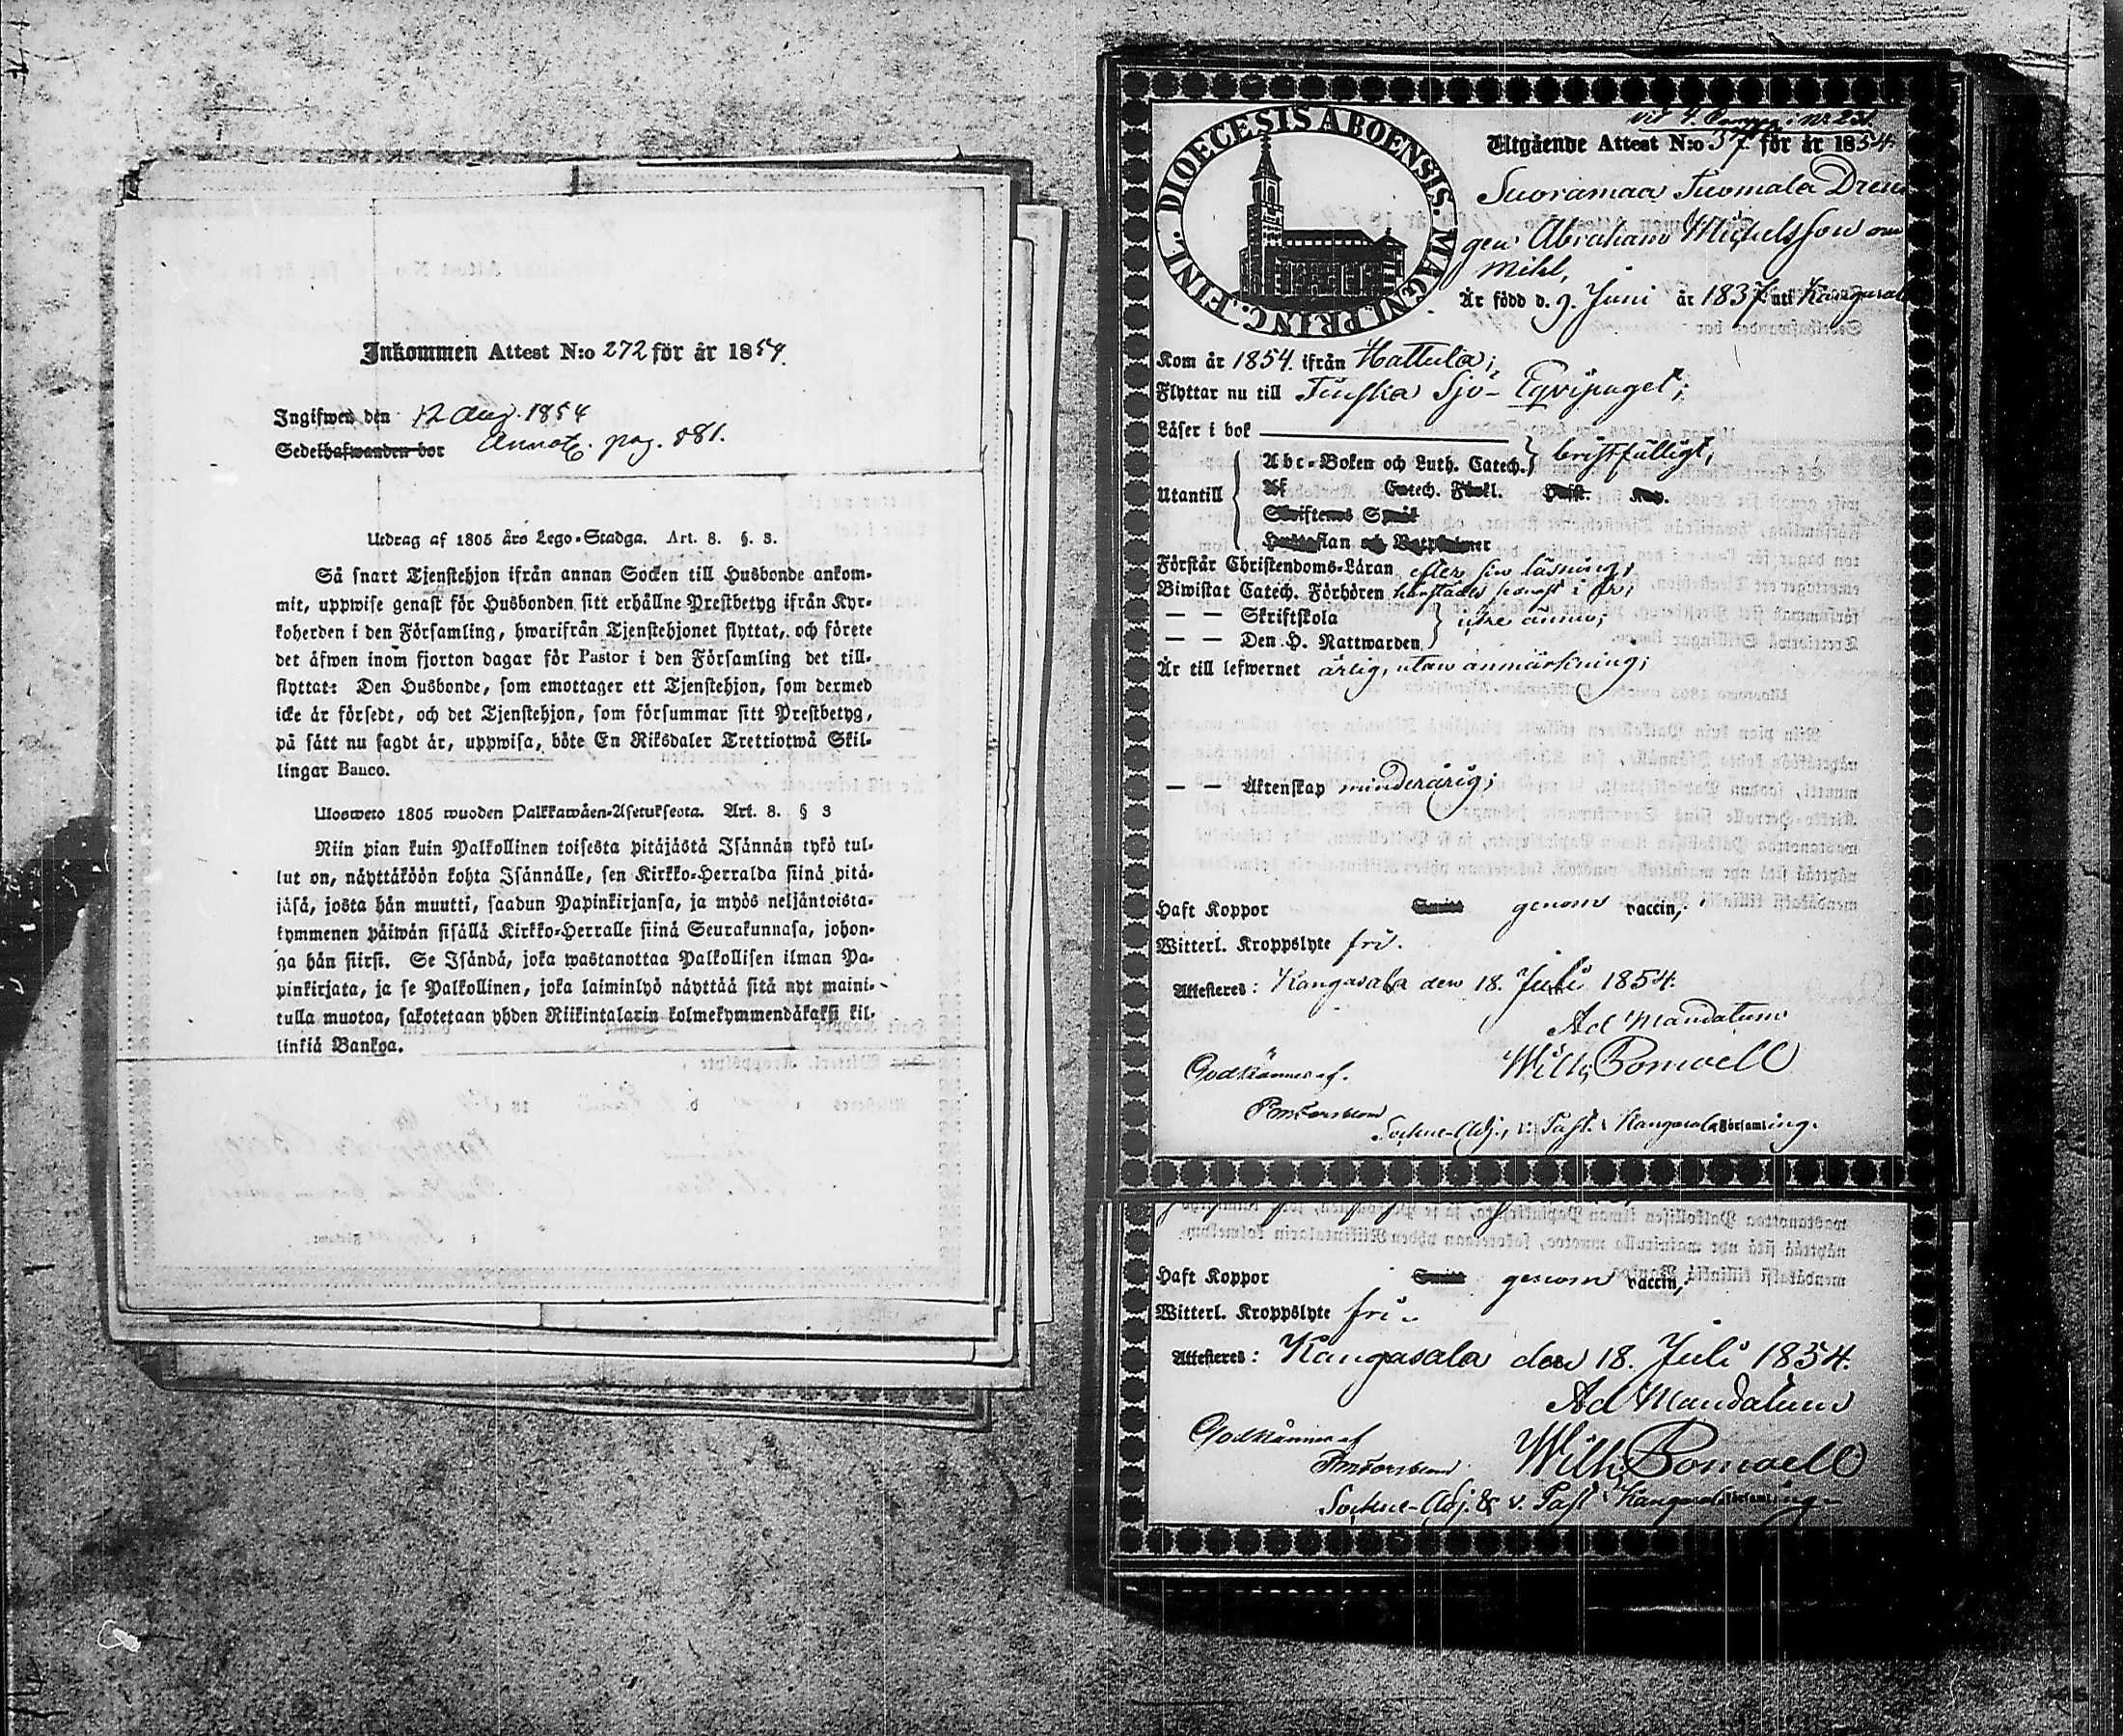 Inkommen Attest N:o 272 för år 1854.
Ingifwen den 12 Aug. 1854
Sedelhafwanden bor Annot. pag. 881.
Utdrag af 1805 års Lego-Stadga. Art. 8. §. 3.
Så snart Tjenstehjon ifrån annan Socken till Husbonde ankom-
mit, uppwise genast för Husbonden sitt erhållne Prestbetyg ifrån Kyr-
koherden i den Församling, hwarifrån Tjenstehjonet flyttat, och förete
det äfwen inom fjorton dagar för Pastor i den Församling det till-
flyttat: Den Husbonde, som emottager ett Tjenstehjon, som dermed
icke är försedt, och det Tjenstehjon, som försummar sitt Prestbetyg,
på sätt nu sagdt är, uppwisa, böte En Riksdaler Trettiotwå Skil-
lingar Banco.
Uloswero 1805 wuoden Palkkawäen-Asetuksesta. Art. 8. § 3
Niin pian kuin Palkollinen toisesta pitäjästä Isännän tykö tul-
lut on, näyttäköön kohta Isännälle, sen Kirkko-Herralda siinä pitä-
jäsä, josta hän muutti, saadun Papinkirjansa, ja myös neljäntoista-
kymmenen päiwän sisällä Kirkko-Herralle siinä Seurakunnasa, johon-
ga hän siirsi. Se Isändä, joka wastanottaa Palkollisen ilman Pa-
pinkirjata, ja se Palkollinen, joka laiminlyö näyttää sitä nyt maini-
tulla muotoa, sakotetaan yhden Riikintalarin kolmekymmendäkaksi kil-
linkiä Bankoa.
DIOECESIS ABOENSIS. MAGNI. PRINC. FINL.
Utgående Attest N:o 37 för år 1854.
Suoramaa Tuomala Dren
gen Abraham Michelsson
Är född d. 9. Juni år 1837 uti Kangasal
Kom år 1854. ifrån Hattula;
Flyttar nu till Finska Sjö-Eqvipaget;
Läser i bok
Utantill Abc-Boken och Luth. Catech. bristfälligt,
Af Catech. Förkl. Hust. Kap.
Skriftenes Språk
Hustaflan och Botpsalmer
Förstår Christendoms-Läran efter sin läsning;
Biwistat Catech. Förhören härstädes senast i
— — Skriftskola
— — Den H. Nattwarden icke ännu;
Är till lefwernet ärlig, utan anmärkning;
— — Äktenskap minderårig;
Haft Koppor Smitt genom vaccin,
Witterl. Kroppslyte fri.
Attesteres: Kangasala den 18. Juli 1854.
Ad Mandatum
Wilh. Bonwell
Godkännes af.
Sockne-Adj., v. Past. i Kangasala Församling.
Haft Koppor Smitt genom vaccin,
Witterl. Kroppslyte fri.
Attesteres: Kangasala den 18. Juli 1854.
Ad Mandatum
Godkännes af
Wilh. Bonwell
Sockne-Adj. & v. Past i Kangasala Församling.